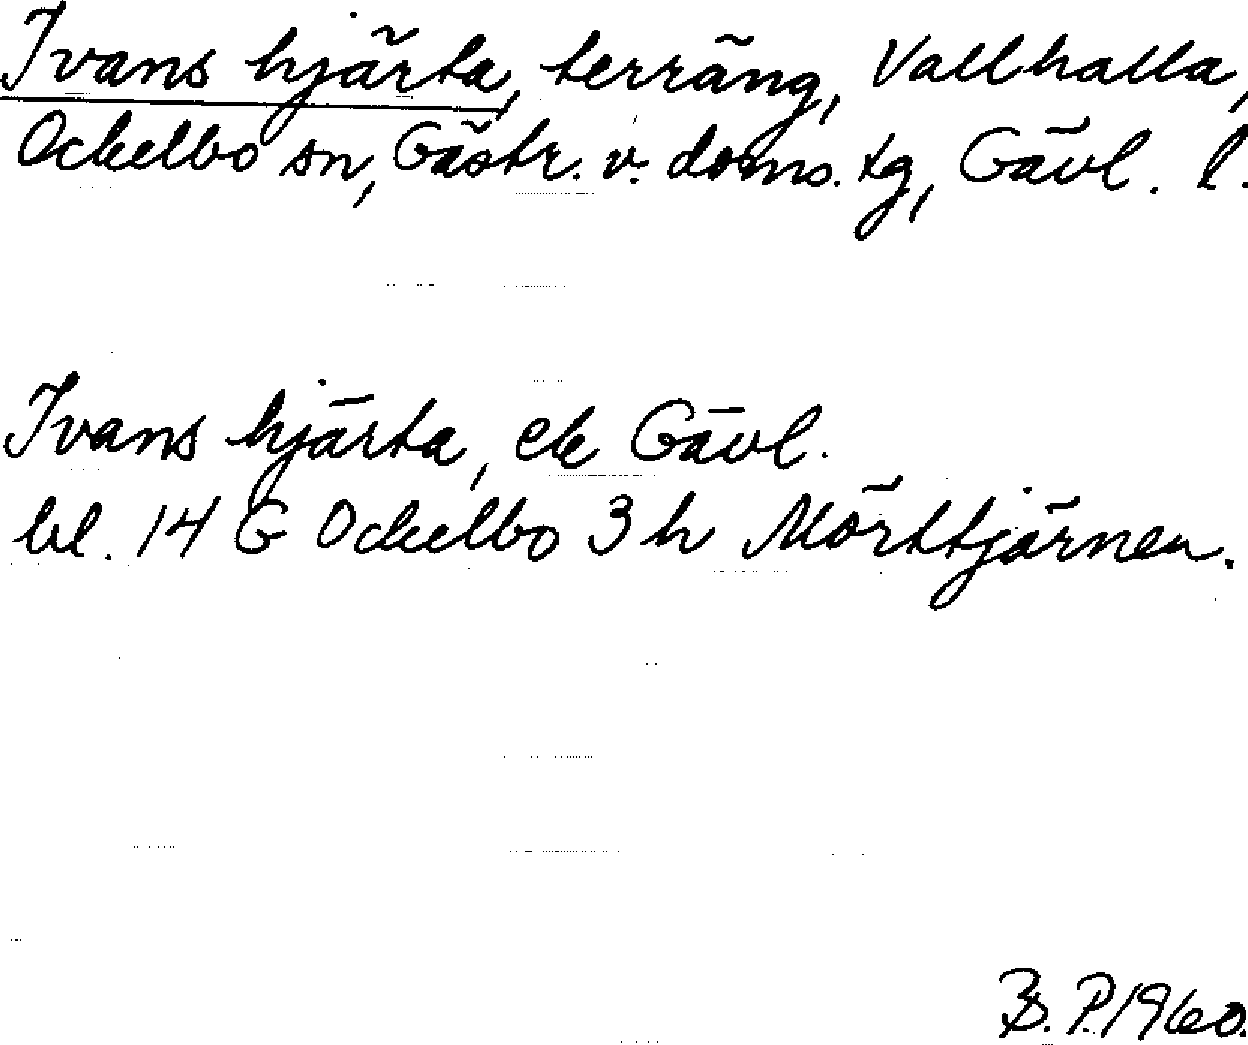 Ivans hjärta, terräng, Vallhalla,
Ockelbo sn, Gästr. v. doms. tg, Gävl. l.
Ivans hjärta, ek Gävl.
bl. 14 G Ockelbo 3 h Mörttjärnen.
B. P. 1960.